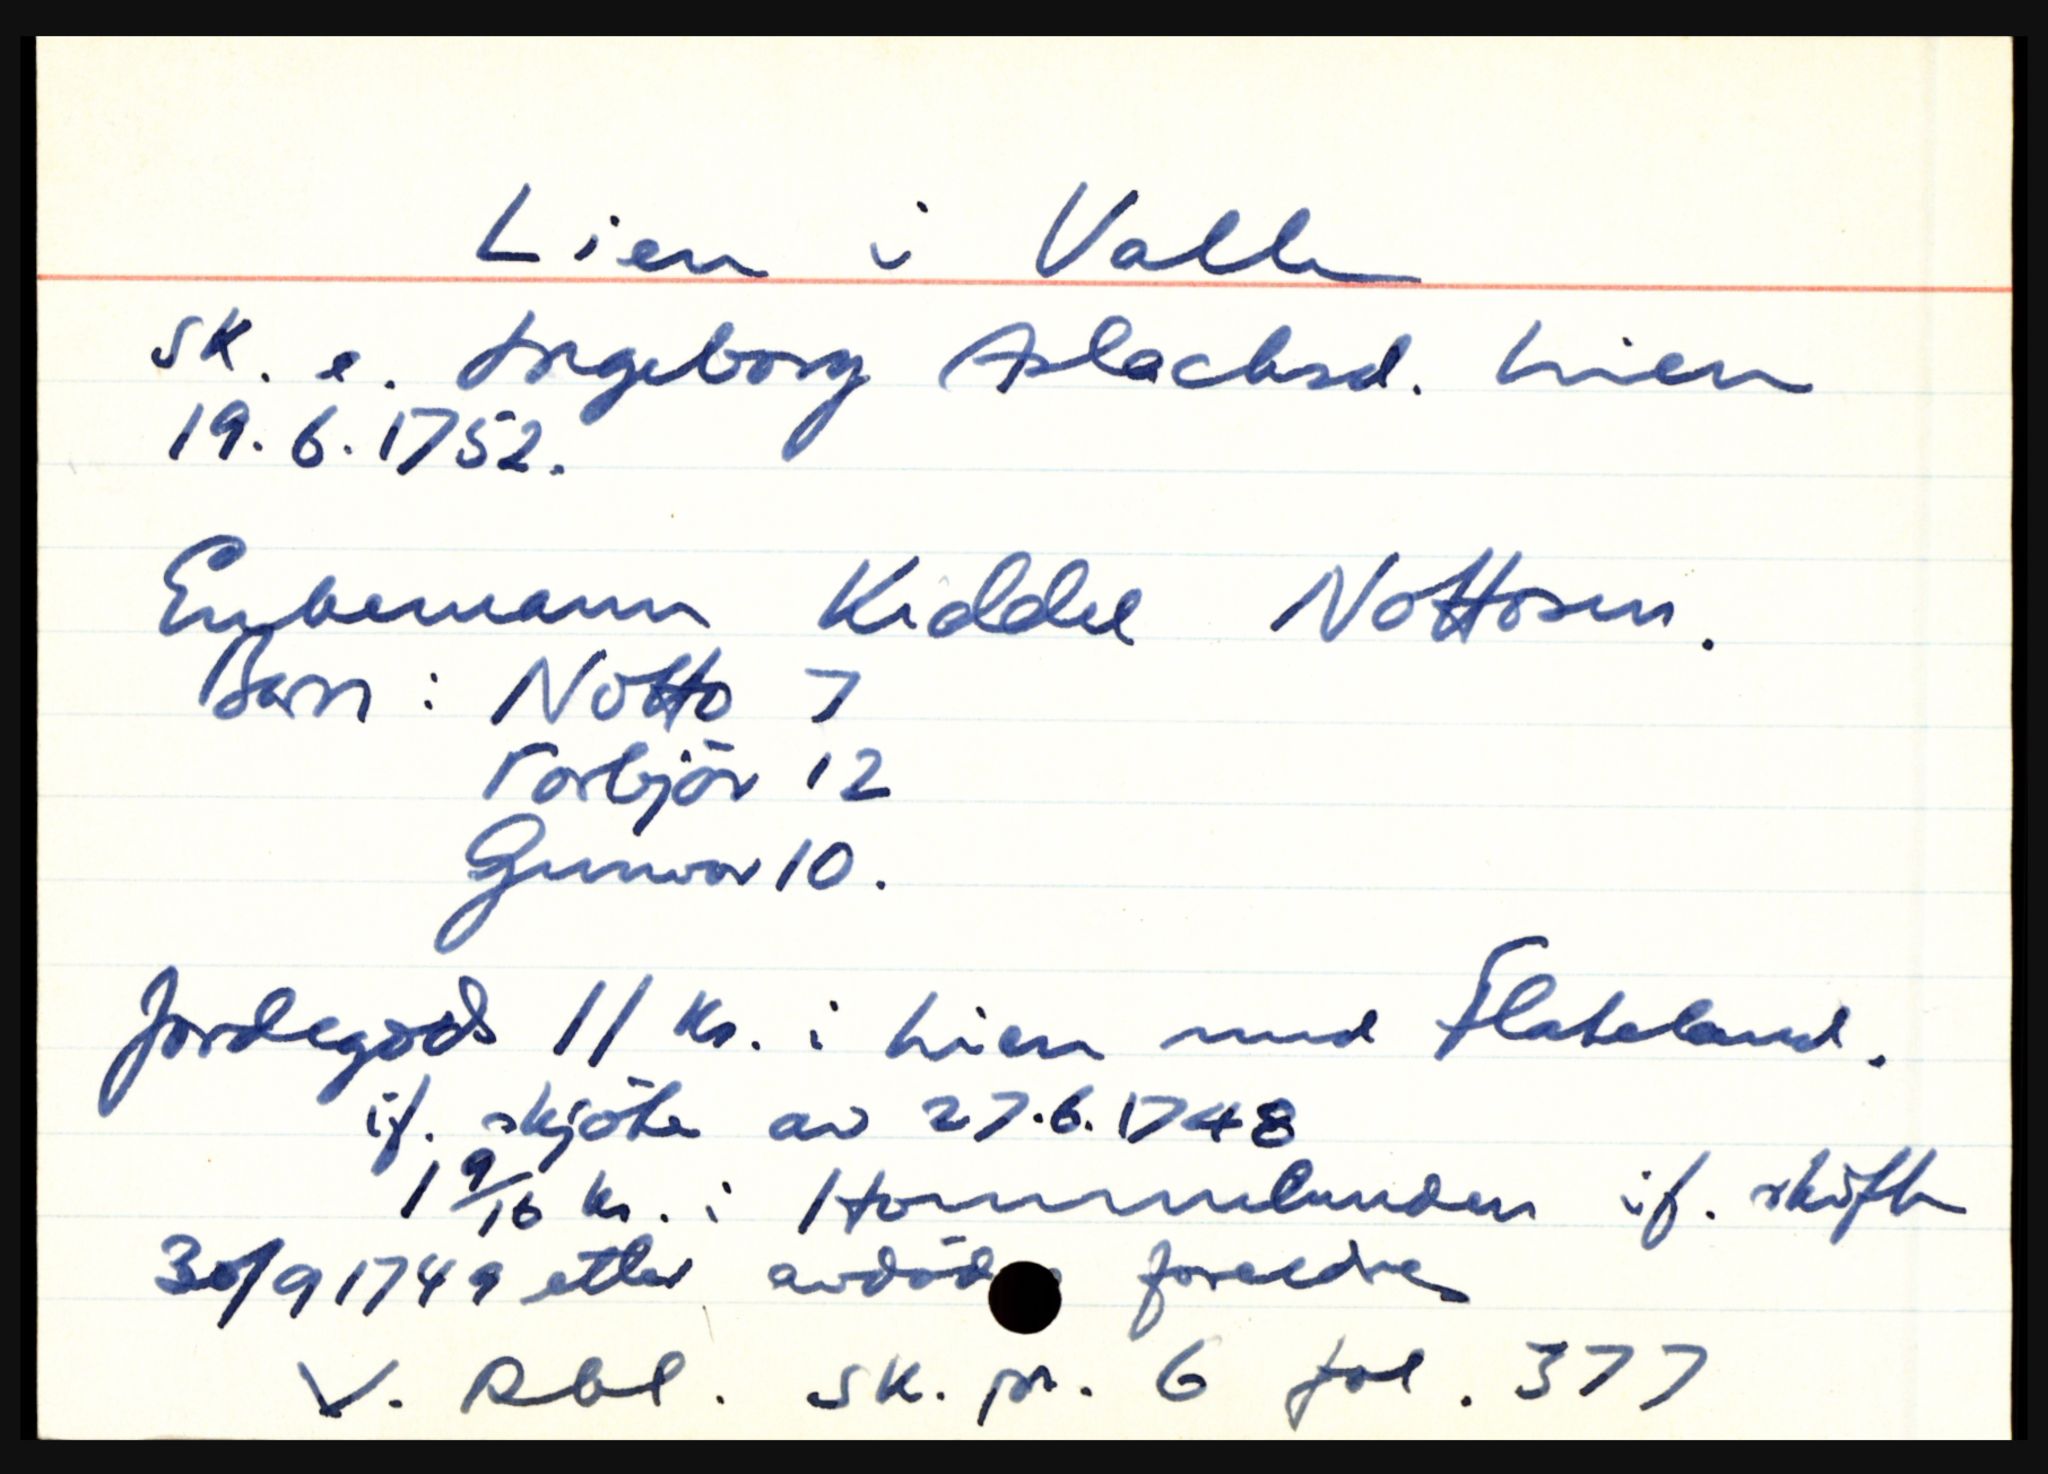 Lien i Valle
sk. e. Ingeborg Aslachsd. Lien
19.6.1752.
Enkemann Kiddel Nottosen.
Barn : Notto 7
Torbjör 12
Gunvor 10.
Jordegods 11 kr. i Lien med Flateland.
if. skjöte av 27.6.1748
1 9/16 kr. i Hommelunden if. skifte
30/9 1749 etter avdöde foreldre
V. Rbd. sk. pr. 6 fol. 377